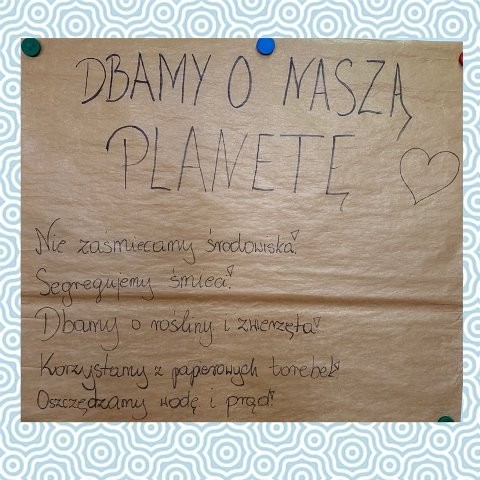 DBAMY O NASZĄ
PLANETĘ
Nie zaśmiecamy środowiska!
Segregujemy śmieci!
Dbamy o rośliny i zwierzęta!
Korzystamy z papierowych torebek!
Oszczędzamy wodę i prąd!